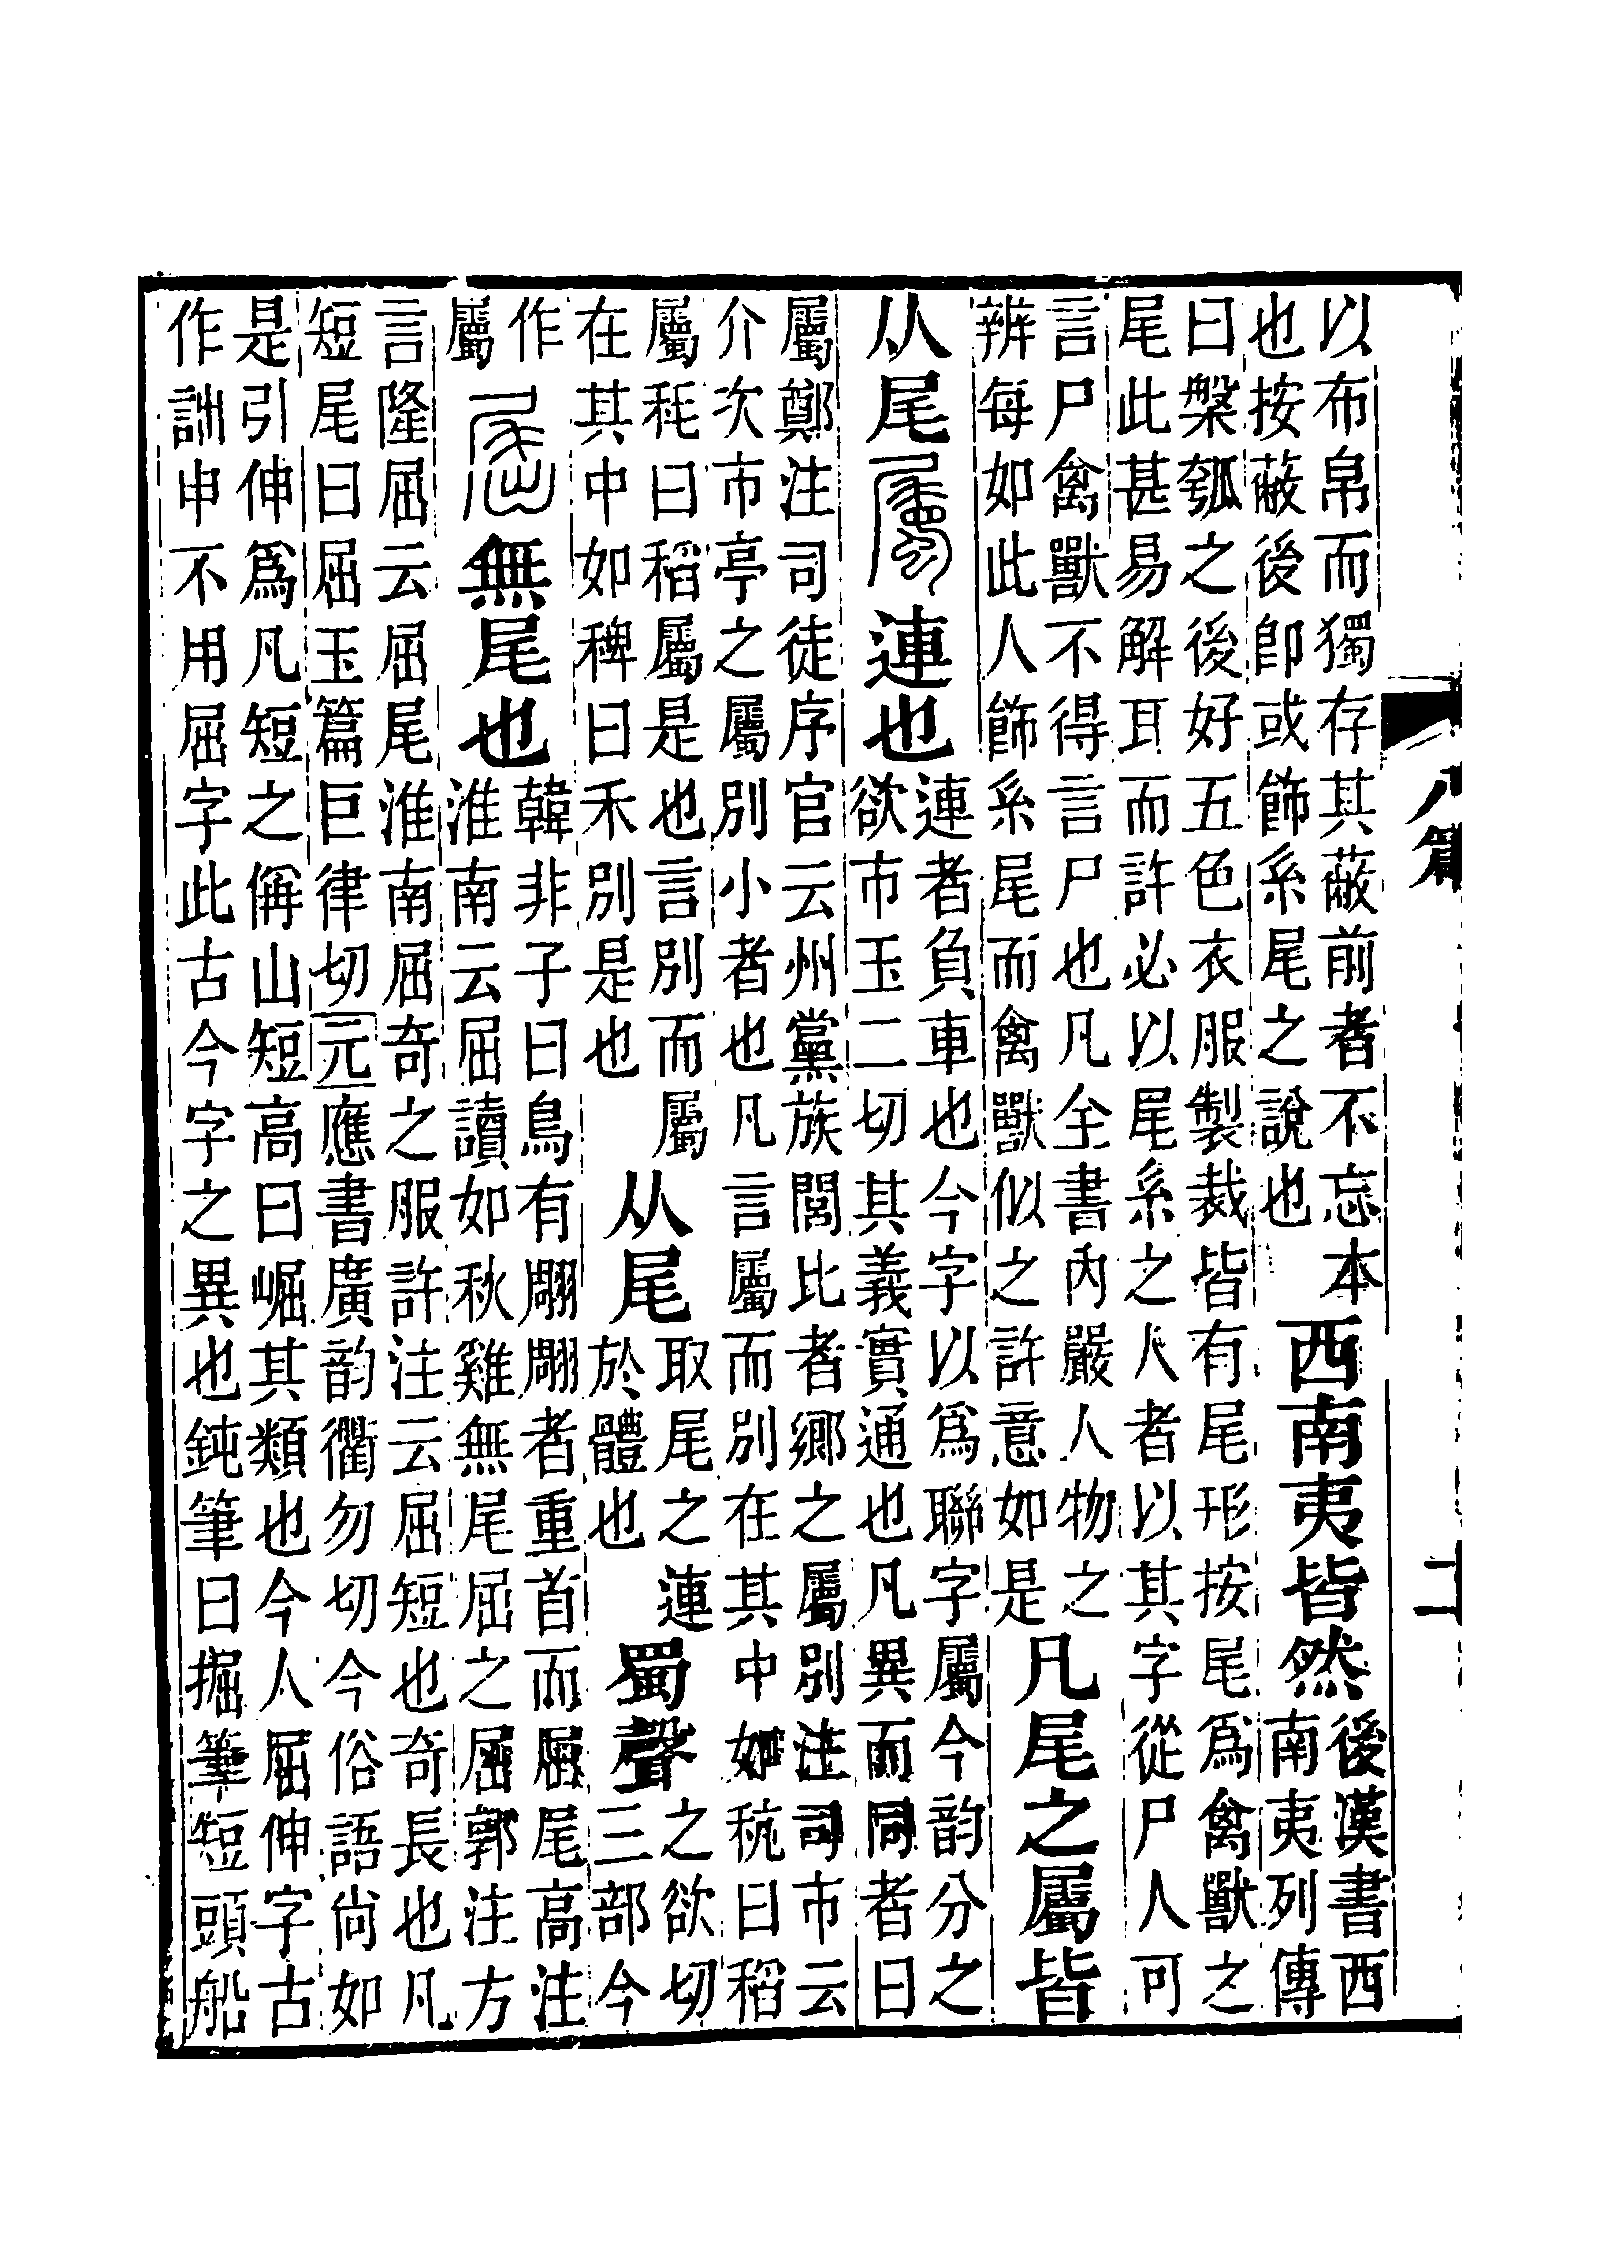 以布帛而獨存其蔽前者不忘本也按蔽後卽或飾系尾之說也西南夷皆然後漢書西南夷列傳
曰槃瓠之後好五色衣服製裁皆有尾形按尾爲禽獸之尾此甚易解耳而許必以尾系之人者以其字從尸人可
言尸禽獸不得言尸也凡全書內嚴人物之辨每如此人飾系尾而禽獸似之許意如是凡尾之屬皆
从尾屬連也連者負車也今字以爲聯字屬今韵分之欲市玉二切其義實通也凡異而同者曰
屬鄭注司徒序官云州黨族閭比者鄉之屬別注司市云介次市亭之屬別小者也凡言屬而別在其中如秔曰稻
屬秏曰稻屬是也言別而屬在其中如稗曰禾別是也从尾取尾之連於體也蜀聲之欲切三部今
作屬屈無尾也韓非子曰鳥有翢翢者重首而屈尾高注淮南云屈讀如秋雞無尾屈之屈郭注方
言隆屈云屈尾淮南屈奇之服許注云屈短也奇長也凡短尾曰屈玉篇巨律切元應書廣韵衢勿切今俗語尚如
是引伸爲凡短之偁山短高曰崛其類也今人屈伸字古作詘申不用屈字此古今字之異也鈍筆曰掘筆短頭船
八篇
二